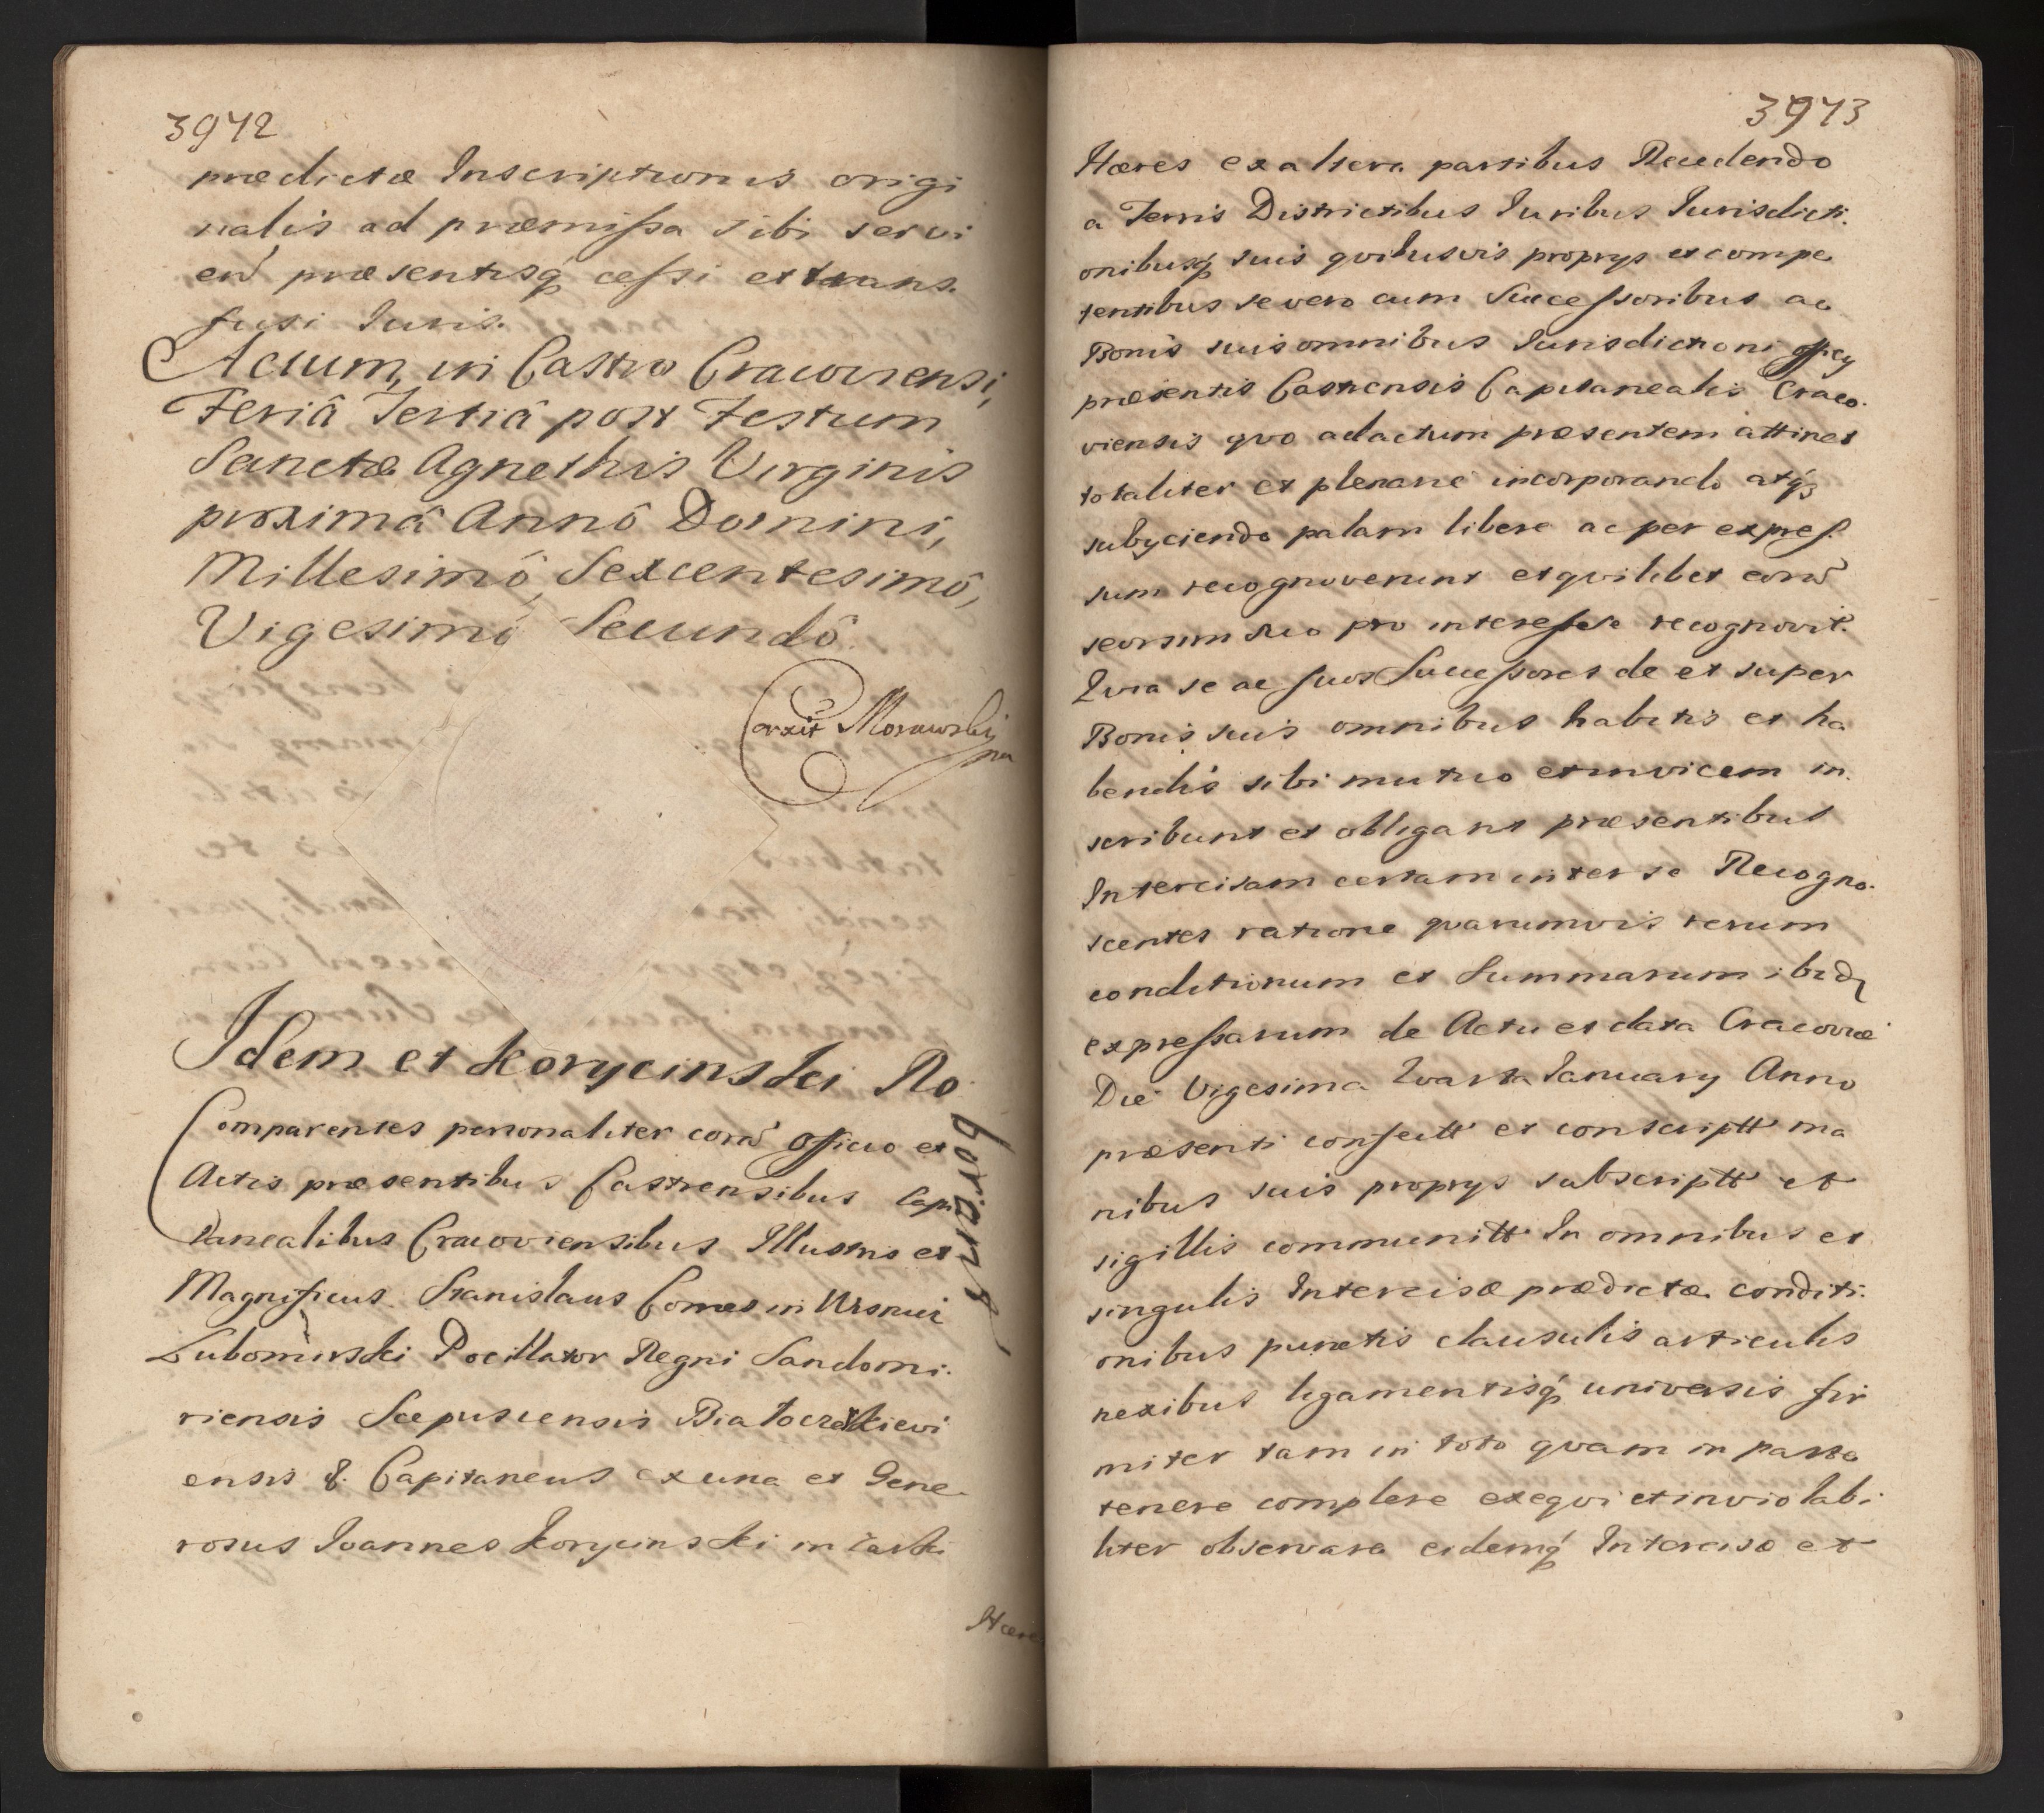 3942
prædictæ Inscriptionis origi
nalis ad præmiſsa sibi servi
end præsentisq́ ceſsi et trans.
fusi Iuris.
Actum, in Castro Cracoviensi,
Feriâ Tertiâ post Festum
Sanctæ Agnethis Virginis
proximâ Annô Domini,
Millesimô, Sexcentesimô,
Vigesimô Secundô.
Corxit Morawski
mp
Idem et Korycinski Ro
borant
Comparentes personaliter corā Officio et
Actis præsentibus Castrensibus Capi
tanealibus Cracoviensibus Illustris et
Magnificus Stanislaus Comes in Wisnicz
Lubomirski Pocillator Regni Sandomi.
riensis Scepusiensis Białocerkievi
ensis &. Capitaneus ex una et Gene.
rosus Ioannes Korycinski in
Hæres
3943
Hæres ex altera partibus Recedendo
a Terris Districtibus Iuribus Iurisdicti.
onibusq́ suis quibusvis proprys et compe
tentibus se vero cum Succeſsoribus ac
Bonis suis omnibus Iurisdictioni Officy
præsentis Castrensis Capitanealis Craco.
viensis quo ad actum præsentem attinet
totaliter et plenariè incorporando atq́
subyciendo palam libere ac per expreſ.
sum recognoverunt et quilibet eorū
seorsim suo pro intereſse recognovit.
Quia se ac suos Succeſsores de et super
Bonis suis omnibus habitis et ha
bendis sibi mutuo et invicem in.
scribunt et obligant præsentibus
Intercisam certam inter se Recogno.
scentes ratione quarumvis rerum
conditionum et Summarum ibid
expreſsarum de Actu et data Cracoviæ
Die Vigesima Quarta Ianuary Anno
præsenti confectt et conscriptt ma
nibus suis proprys subscriptt et
sigillis communitt In omnibus et
singulis Intercisæ prædictæ conditi.
onibus punctis clausulis articulis
nexibus ligamentisq́ universis fir
miter tam in toto quam in parte
tenere complere exequi et inviolabi
liter observare eidemq́ Intercisæ et